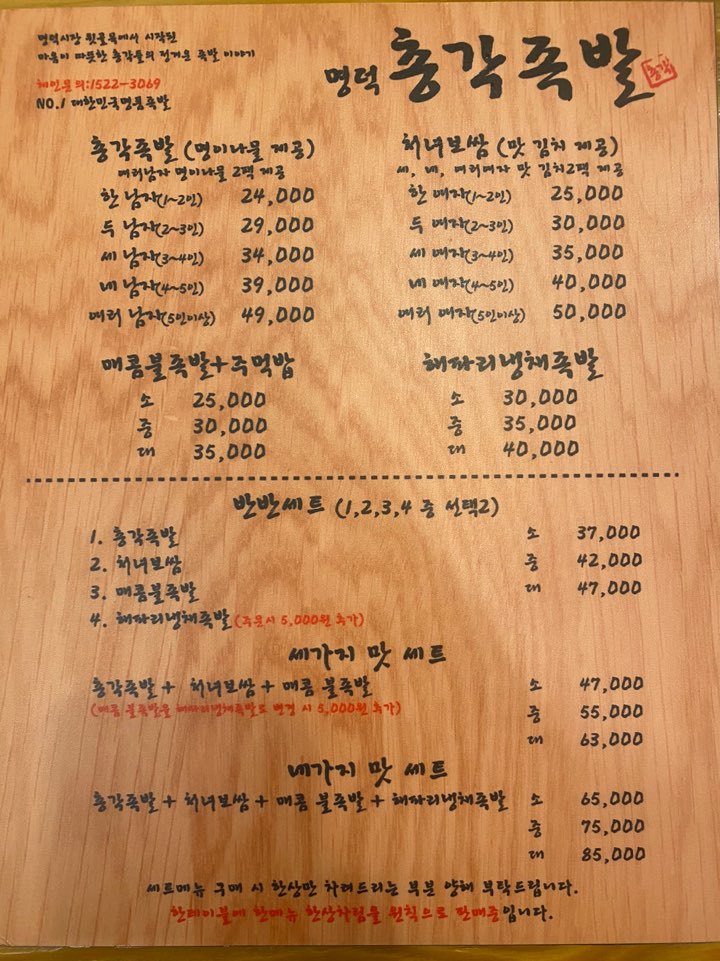 명덕시장 뒷골목에서 시작된
마음이 따뜻한 총각들의 정겨운 족발 이야기
체인문의:1522-3069
NO.1 대한민국명품족발
명덕 총각족발
총각
총각족발 (명이나물 제공)
여러남자 명이나물 2팩 제공
한 남자(1~2인) 24,000
두 남자(2~3인) 29,000
세 남자(3~4인) 34,000
네 남자(4~5인) 39,000
여러 남자(5인이상) 49,000
처녀보쌈 (맛 김치 제공)
세, 네, 여러여자 맛 김치2팩 제공
한 여자(1~2인) 25,000
두 여자(2~3인) 30,000
세 여자(3~4인) 35,000
네 여자(4~5인) 40,000
여러 여자(5인이상) 50,000
매콤불족발+주먹밥
소 25,000
중 30,000
대 35,000
해파리냉채족발
소 30,000
중 35,000
대 40,000
반반세트 (1,2,3,4 중 선택2)
1. 총각족발 소 37,000
2. 처녀보쌈 중 42,000
3. 매콤불족발 대 47,000
4. 해파리냉채족발 (주문시 5,000원 추가)
세가지 맛 세트
총각족발 + 처녀보쌈 + 매콤 불족발 소 47,000
(매콤 불족발을 해파리냉채족발로 변경 시 5,000원 추가) 중 55,000
대 63,000
네가지 맛 세트
총각족발 + 처녀보쌈 + 매콤 불족발 + 해파리냉채족발 소 65,000
중 75,000
대 85,000
세트메뉴 구매 시 한상만 차려드리는 부분 양해 부탁드립니다.
한테이블에 한메뉴 한상차림을 원칙으로 판매중입니다.